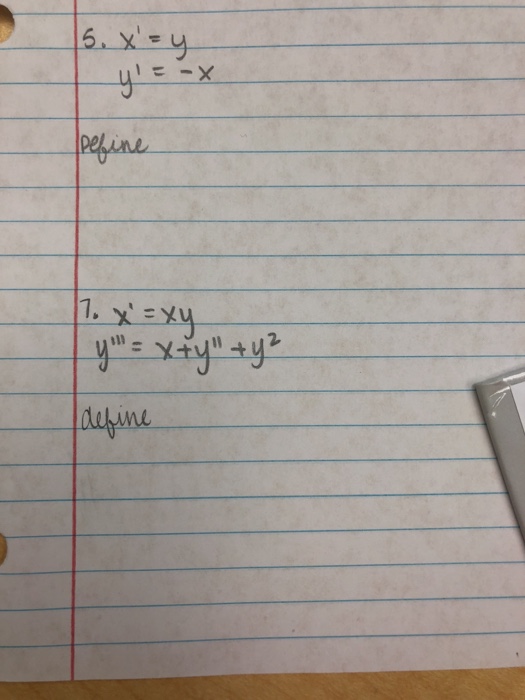 5. x' = y
y' = -x
Define
7. x' = xy
y''' = x+y''+y²
define